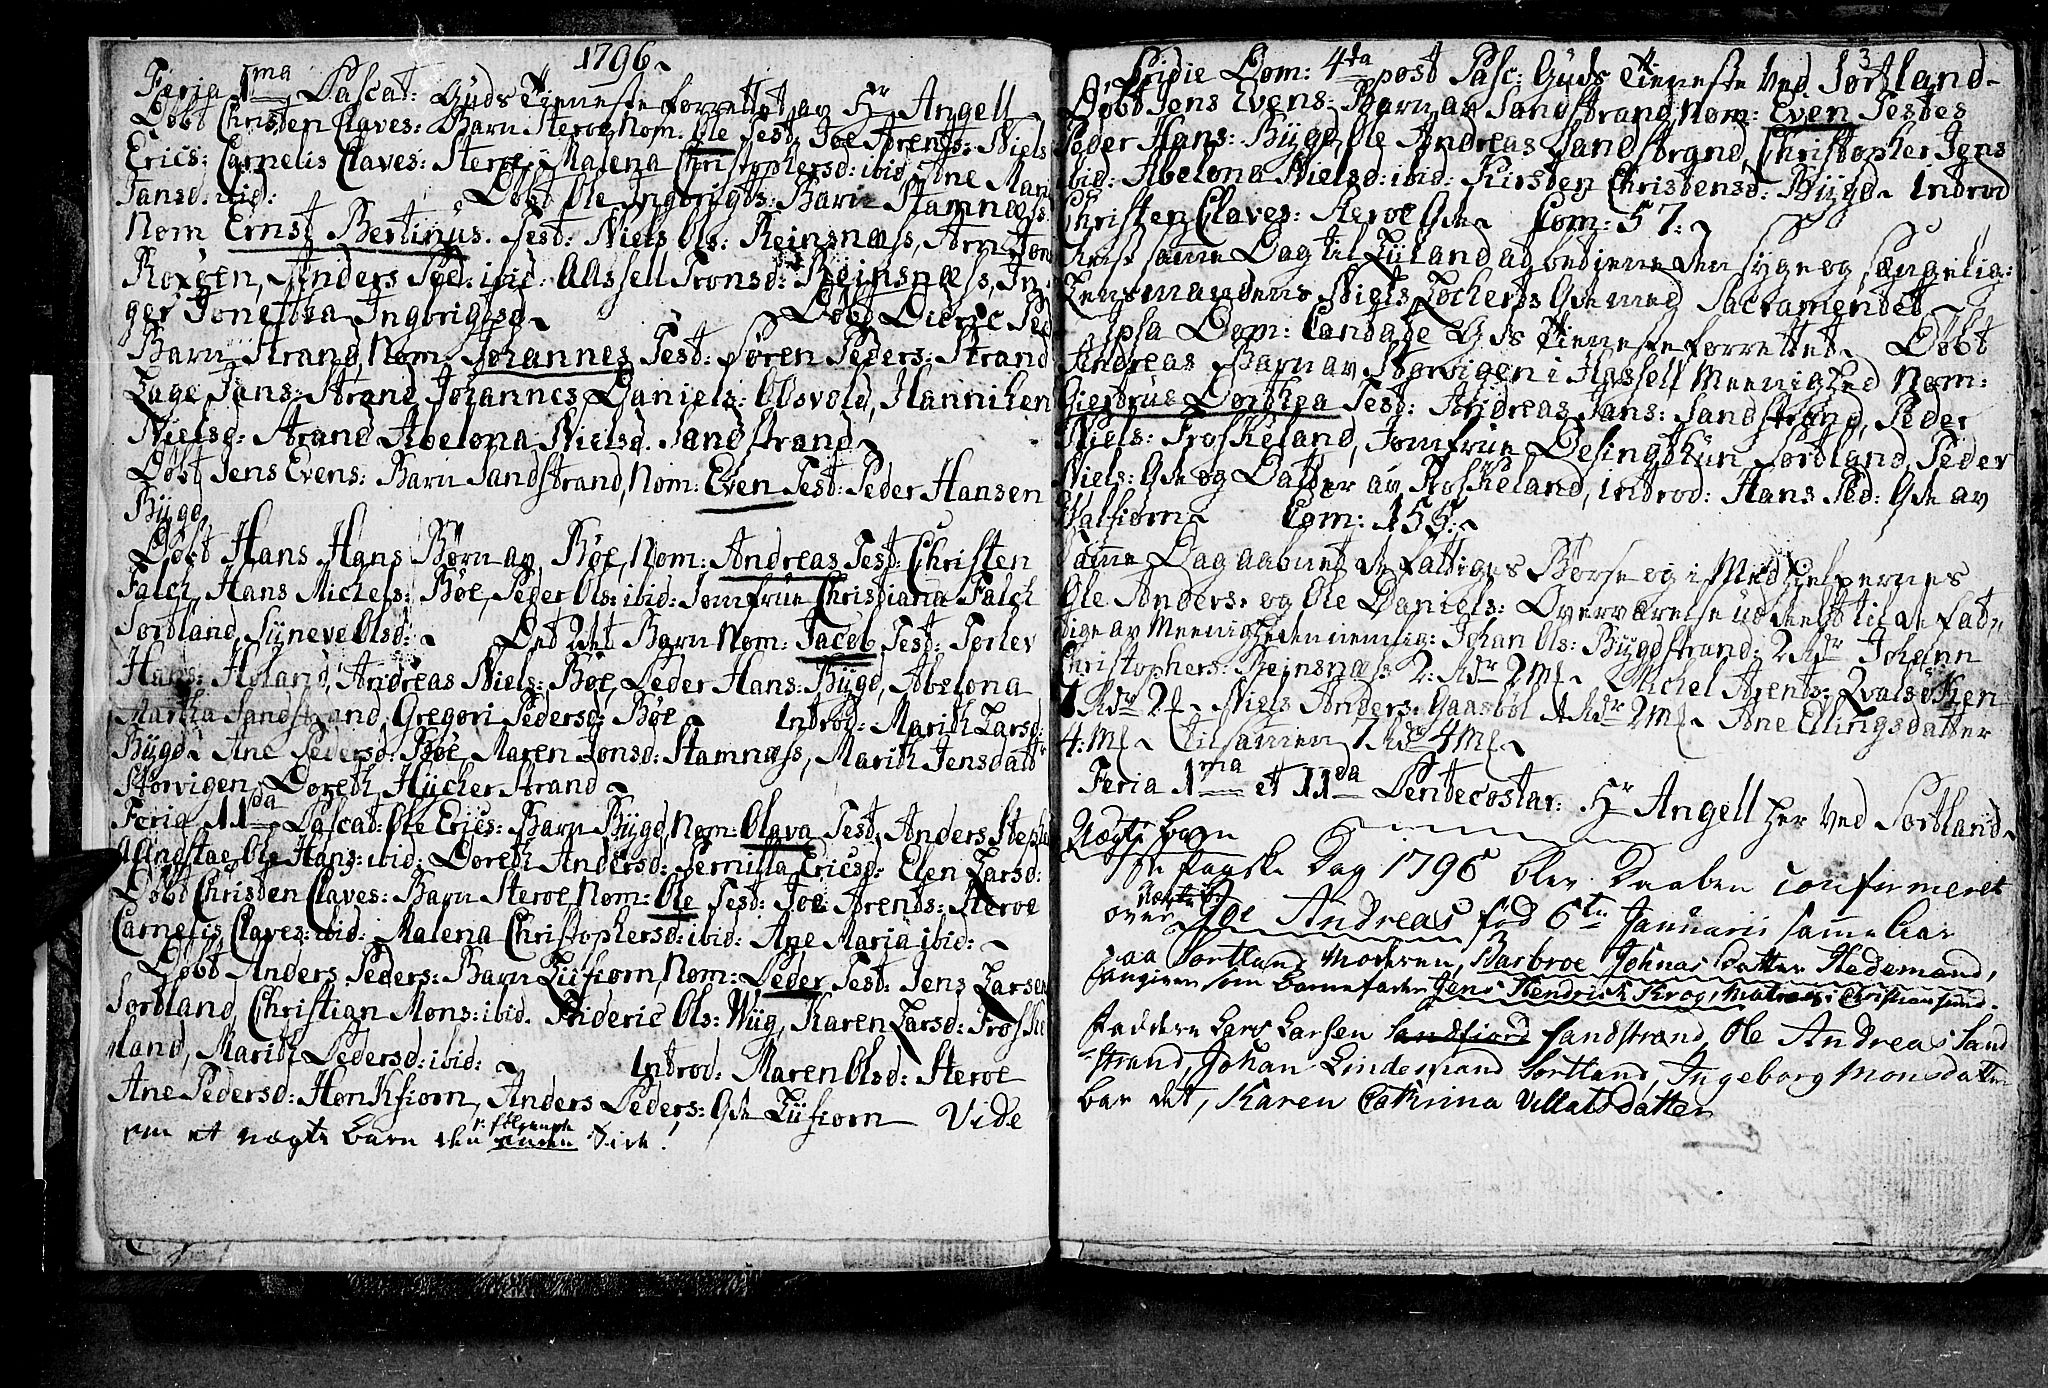 1796
Feria 1ma Pascat: Guds Tieneste forrettet av Hr Angell
Døbt Christen Claves: Barn Steroe, Nom: Ole Test: Joe Arents: Niels
Erics: Carnelis Claves: Steroe, Malena Christophersd: ibid, Ane Mar
Jansd: ibid: Døbt Ole Ingbrigts: Barn Stamnæss
Nom Ernst Bertinus. Test: Niels Ols: Reinsnæss, Arn Jon
Anders Ped: ibid: Assell Tronsd: Reinsnæss, In-
ger Ingbrigtsd Døbt Dideric Ped
Barn Strand, Nom: Johannes Test: Søren Peders: Strand
Lage Jans: Strand Johannes Daniels: Osvold, Hanniken
Nielsd: Strand Abelona Nielsd. Sandstrand
Døbt Jens Evens: Barn Sandstrand, Nom: Even Test: Peder Hansen
Bygd,
Døbt Hans Hans Børn av Bøe, Nom: Andreas Test: Christen
Falch, Hans Michels: Bøe, Peder Ols: ibid: Jomfrue Christiana Falch
Sortland, Syneve Olsd: Det 2det Barn Nom: Jacob Test: Torlev
Hans: Holand, Andreas Niels: Bøe, Peder Hans: Bygd, Abelona
Martha Sandstrand, Gregori Pedersd: Bøe Introd: Marith Larsd:
Bygd Ane Pedersd: Bøe, Maren Jonsd: Stamnæss, Marith Jensdattr
Storvigen, Doreth Hycher Strand
Feria 11da Pascat: Ole Erics: Barn Bygd, Nom: Olava Test: Anders Steph
Ole Hans: ibid: Doreth Andersd: Pernilla Ericsd: Elen Larsd:
Døbt Christen Claves: Barn Steroe, Nom: Ole Test: Joe Arents: Steroe
Carnelis Claves: ibid: Malena Christophersd: ibid: Ane Maria ibid:
Døbt Anders Peders: Barn Liifiorn, Nom: Peder Test: Jens Larsen
Sortland, Christian Mons: ibid. Frideric Ols: Wiig, Karen Larsd: Froske
land, Marith Pedersd: ibid: Introd: Maren Olsd: Steroe
Ane Pedersd: Honkfiorn, Anders Peders: Qde Liifiorn Vide
om et uægte barn den følgende Side!
3
Pridie Dom: 4ta post Pasc: Guds Tieneste ved Sortland
Døbt Jens Evens: Barn av Sandstrand, Nom: Even Testes
Peder Hans: Bygd, Ole Andreas Sandstrand, Christopher Jens
ibid: Abelona Nielsd: ibid: Kirsten Christensd: Bygd Introd
Christen Claves: Steroe Qde Com: 57:
Reist samme Dag til Lyland at betiene den syge og sengelig:
Lensmandens Niels Locherts Qde med Sacramentet
Ipsa Dom: Cantate Gds Tieneste forrettet Døbt
Andreas Barn av Storvigen i Hassell Meenighed Nom:
Giertrue Dorthea Test: Andreas Hans: Sandstrand, Peder
Niels: Froskeland, Jomfrue Desingthun Sortland, Peder
Niels: Qde og Datter av Froskeland, Introd: Hans Ped: Qde av
Com: 155:
Samme Dag aabnet de fattiges Børse og i Medhielpernes
Ole Anders: og Ole Daniels: Overværelse uddeelt til de fat-
tige av Meenigheden nemlig: Johan Ols: Bygdstrand: 2 Rdr Johann
Christophers: Reinsnæss 2: Rdr 2 Ml Michel Arents:
1 Rdr 2 Niels Anders: Gaasbøl 1 Rdr 2 Ml Ane Ellingsdatter
4: Ml tilsamen 1 Rdr 4 Ml
Feria 1ma et 11da Pentecostar: Hr Angell her ved Sortland
Uægte barn
1ste Paaske Dag 1796 blev Daaben confirmeret
over Joe Andreas fød 6te Januarii samme Aar
paa Sortland, Moderen, Barbroe Johnas Datter Hedemand,
angiven som barnefader Jens Hendrich Krog, Matros i Christiansund.
faddere Lars Larsen Sandfiord Sandstrand, Ole Andreas Sand
strand, Johan Lindemand Sortland, Ingeborg Monsdatter
bar det, Karen Cathrina Villatsdatter